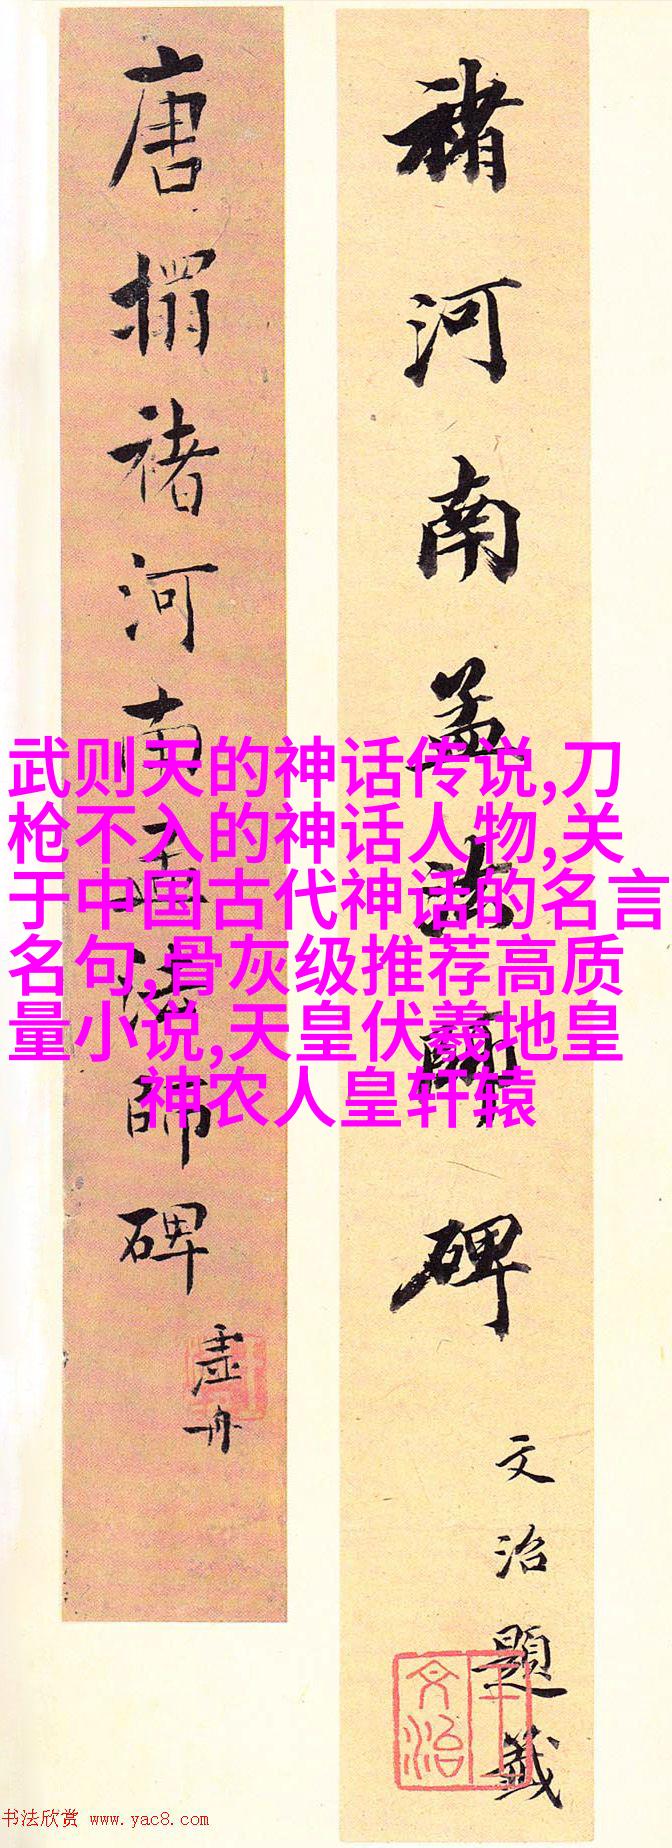 褚河南孟法師碑
文治題籤
王文治
唐搨褚河南孟法師碑
虛舟
武则天的神话传说,刀
枪不入的神话人物,关
于中国古代神话的名言
名句,骨灰级推荐高质
量小说,天皇伏羲地皇
神农人皇轩辕
书法欣赏 www.yac8.com